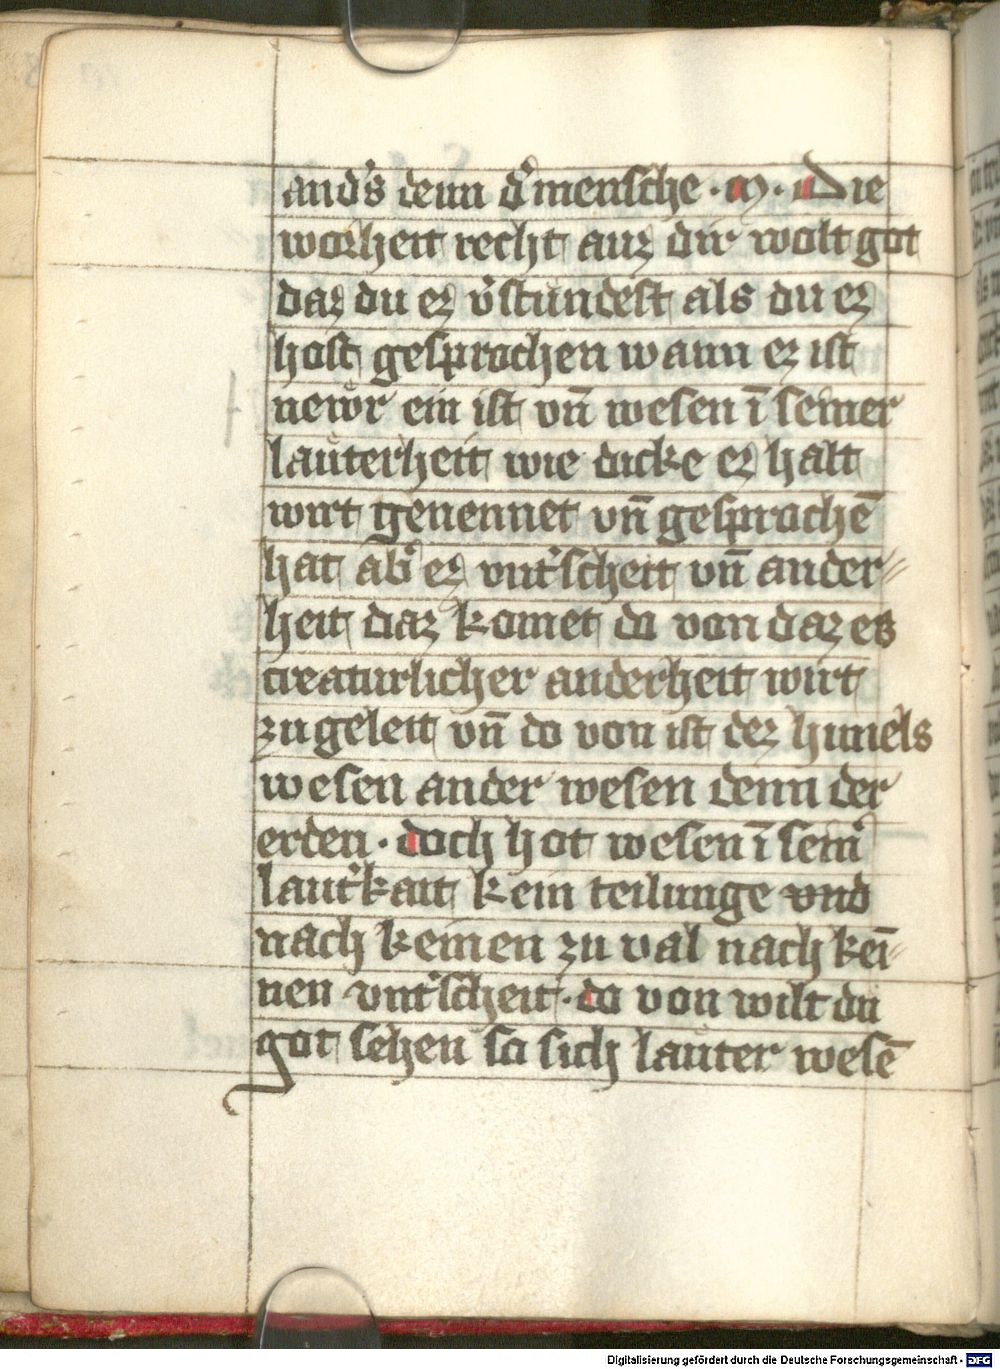 and's denn d' mensche · M · Die
worheit recht auz dir wolt got
daz du ez v'stundest als du ez
host gesprochen wann ez ist
newr ein ist vn̄ wesen ī seiner
lauterheit wie dicke ez halt
wirt genennet vn̄ gesprochē
hat ab' ez vnt'scheit vn̄ ander⸗
heit daz komet do von daz es
creaturlicher anderheit wirt
zu geleit vn̄ do von ist dez himels
wesen ander wesen denn der
erden · doch hot wesen ī seim'
laut'kait kein teilunge vnd
nach keinen zu val nach kei⸗
nen vnt'scheit · do von wilt du
got sehen so sich lauter wesē
Digitalisierung gefördert durch die Deutsche Forschungsgemeinschaft - DFG